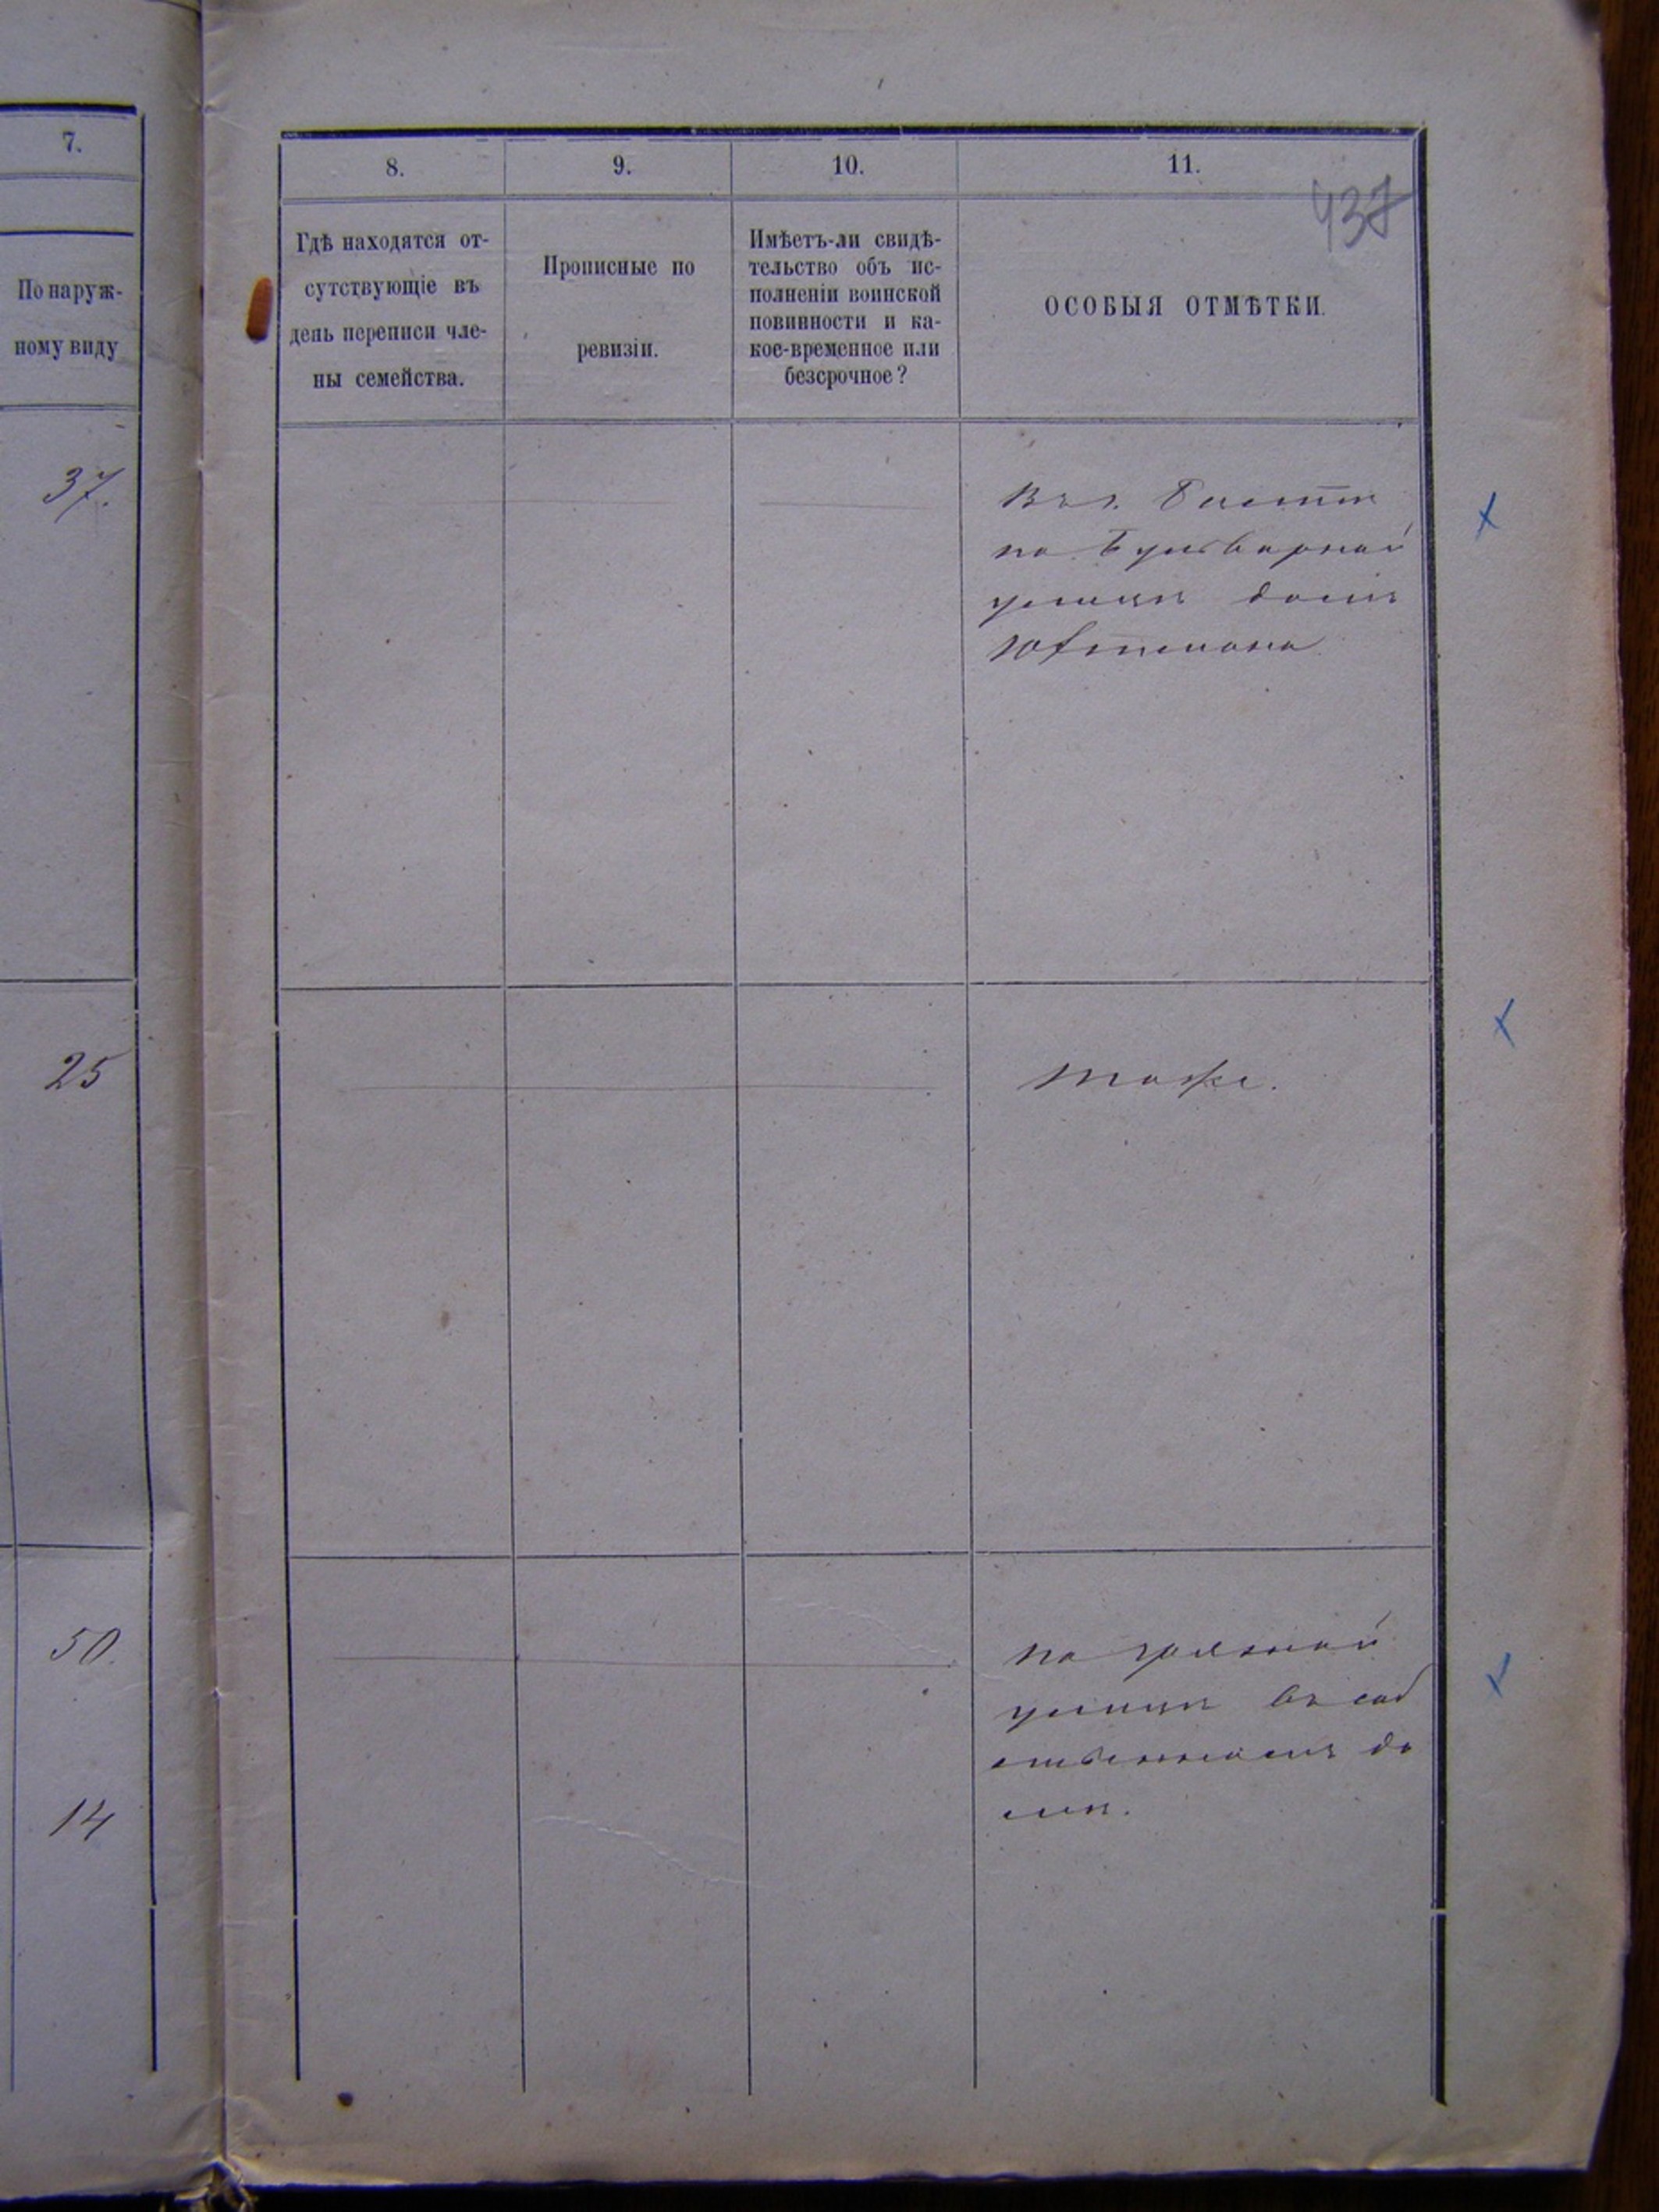 7.
По наруж-
ному виду
37.
25
50.
14
8.
9.
10.
11.
437
Гдѣ находятся от-
сутствующіе въ
день переписи чле-
ны семейства.
Прописные по
ревизіи.
Имѣетъ-ли свидѣ-
тельство объ ис-
полненіи воинской
повинности и ка-
кое-временное или
безсрочное?
ОСОБЫЯ ОТМѢТКИ.
Въ г.
по Бульварной
улицѣ домъ
тоже.
по
улицѣ въ соб
ственномъ до
мѣ.